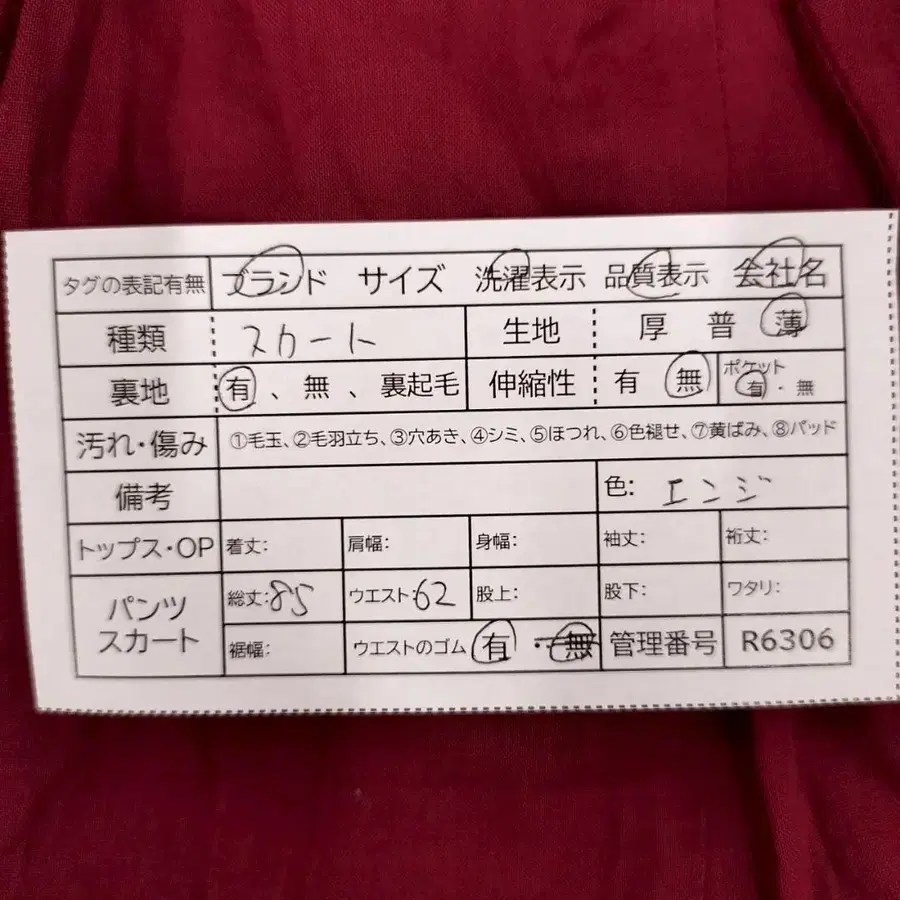 タグの表記有無 ブランド サイズ 洗濯表示 品質表示 会社名
種類 スカート 生地 厚 普 薄
裏地 有、無、裏起毛 伸縮性 有 無 ポケット 有・無
汚れ・傷み ①毛玉、②毛羽立ち、③穴あき、④シミ、⑤ほつれ、⑥色褪せ、⑦黄ばみ、⑧パッド
備考 色: エンジ
トップス・OP 着丈: 肩幅: 身幅: 袖丈: 裄丈:
パンツ スカート 総丈:85 ウエスト:62 股上: 股下: ワタリ:
裾幅: ウエストのゴム 有・無 管理番号 R6306